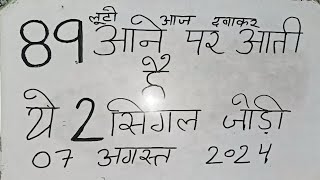 लूटो आज दबाकर
89 आने पर आती
है
ये 2 सिंगल जोड़ी
07 अगस्त 2024